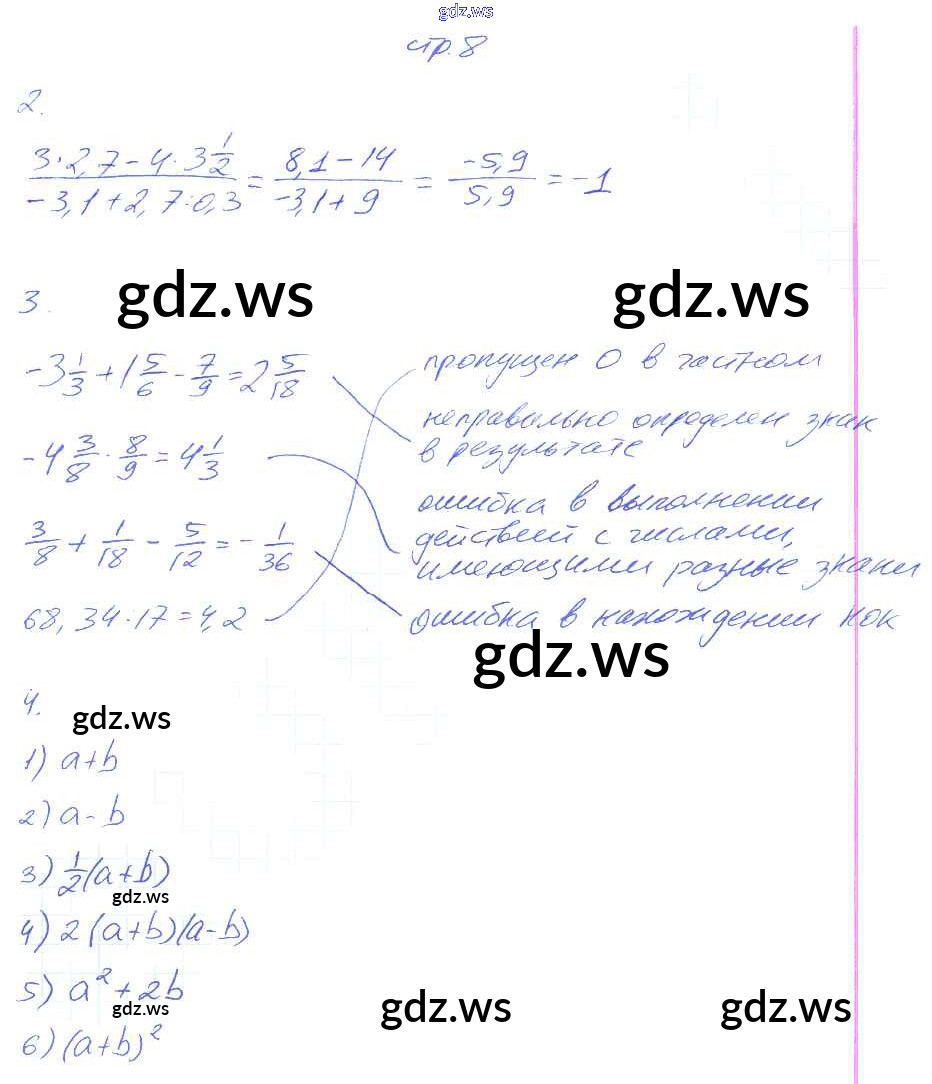 gdz.ws
стр. 8
2.
(3·2,7 - 4·3 1/2)/(-3,1 + 2,7:0,3) = (8,1 - 14)/(-3,1 + 9) = -5,9/5,9 = -1
gdz.ws gdz.ws
3.
-3 1/3 + 1 5/6 - 7/9 = 2 5/18
пропущен 0 в частном
-4 3/8 · 8/9 = 4 1/3
неправильно определен знак
в результате
3/8 + 1/18 - 5/12 = - 1/36
ошибка в выполнении
действий с числами,
имеющими разные знаки
68,34:17 = 4,2
ошибка в нахождении нок
gdz.ws
4.
gdz.ws
1) a+b
2) a-b
3) 1/2(a+b)
gdz.ws
4) 2(a+b)(a-b)
5) a² + 2b
gdz.ws gdz.ws gdz.ws
6) (a+b)²